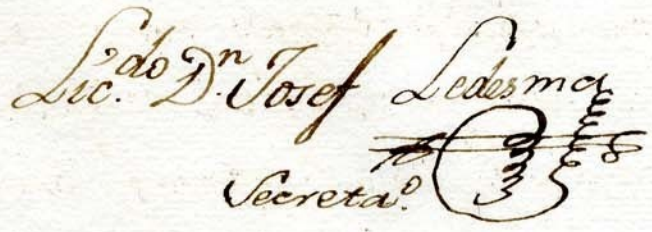 Lic.do Dn Josef Ledesma
Secreta.o